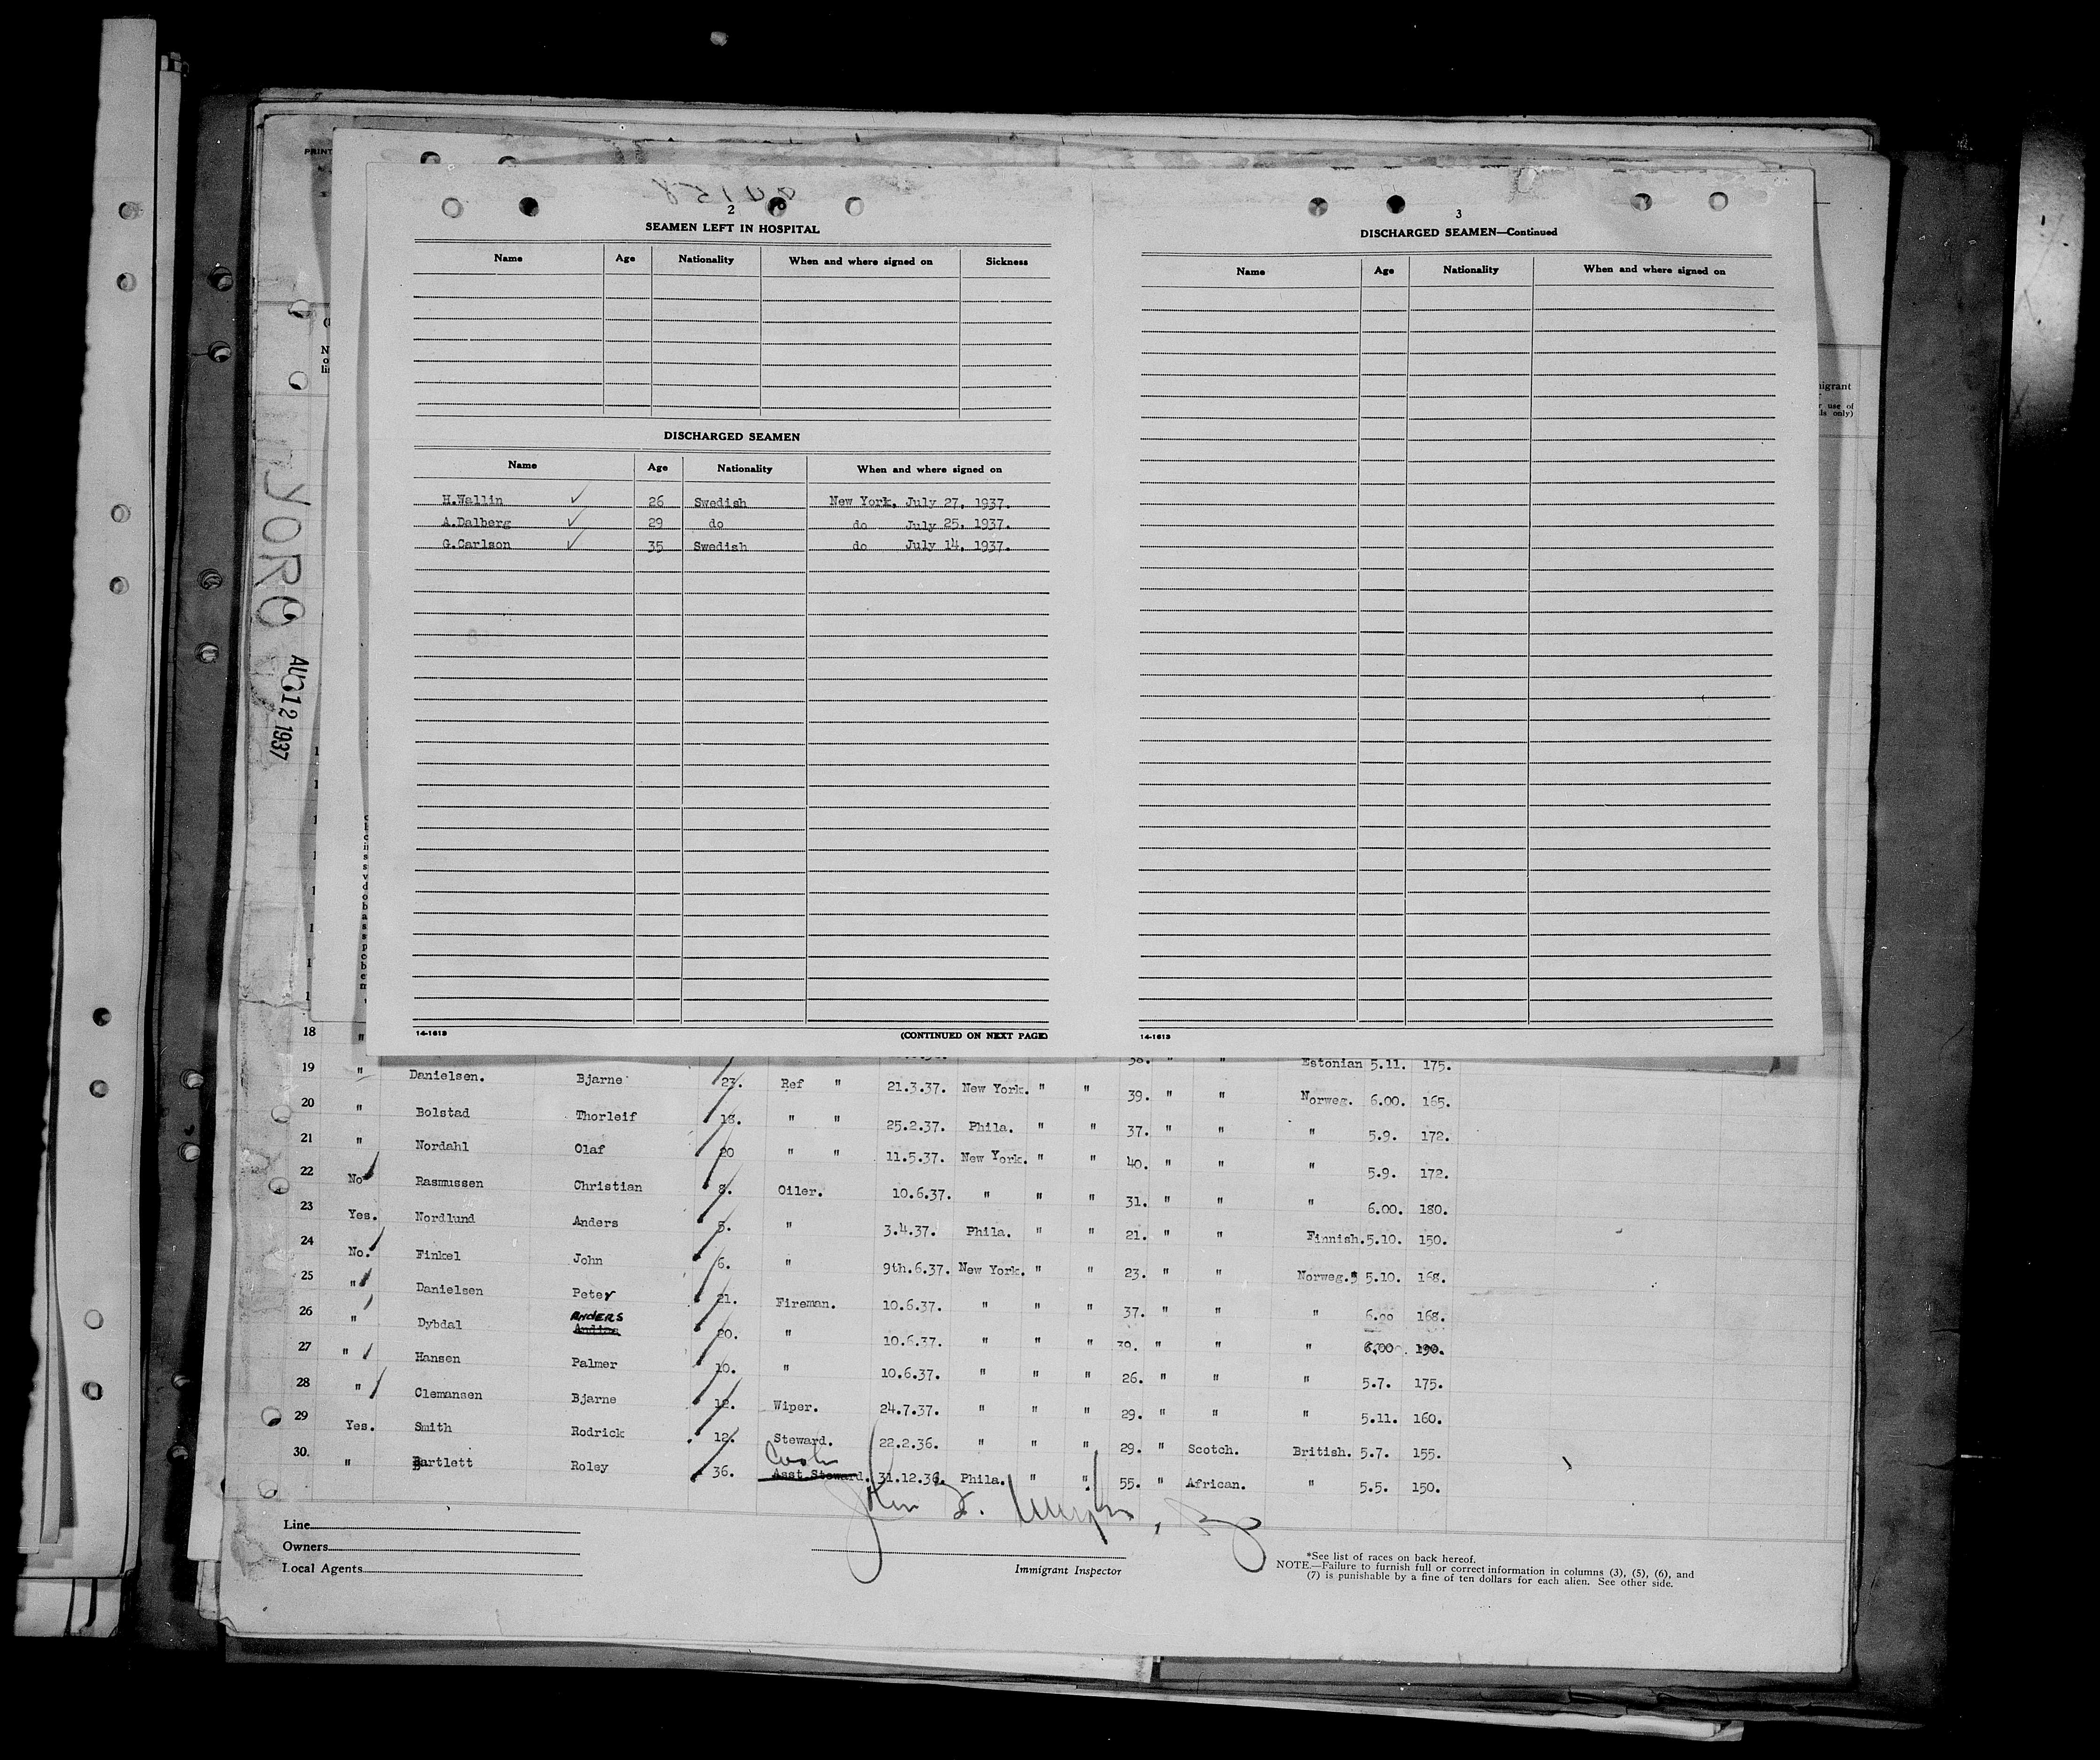 PRINT
2
SEAMEN LEFT IN HOSPITAL
Name Age Nationality When and where signed on Sickness
DISCHARGED SEAMEN
Name Age Nationality When and where signed on
H.Wallin ✓ 26 Swedish New York, July 27, 1937.
A.Dalberg ✓ 29 do do July 25, 1937.
G.Carlson ✓ 35 Swedish do July 14, 1937.
14-1613
(CONTINUED ON NEXT PAGE)
3
DISCHARGED SEAMEN—Continued
Name Age Nationality When and where signed on
14-1613
migrant
r use of
ls only)
AUG 12 1937
18 "
38. " " Estonian 5.11. 175.
19 " Danielsen. Bjarne 23. Ref " 21.3.37. New York. " " 39. " " Norweg. 6.00. 165.
20 " Bolstad Thorleif 18. " " 25.2.37. Phila. " " 37. " " " 5.9. 172.
21 " Nordahl Olaf 20 " " 11.5.37. New York. " " 40. " " " 5.9. 172.
22 No Rasmussen Christian 8. Oiler. 10.6.37. " " " 31. " " " 6.00. 180.
23 Yes. Nordlund Anders 5. " 3.4.37. Phila. " " 21. " " Finnish. 5.10. 150.
24 No. Finkel John 6. " 9th.6.37. New York. " " 23. " " Norweg. 5.10. 168.
25 " Danielsen Peter 21. Fireman. 10.6.37. " " " 37. " " " 6.00 168.
26 " Dybdal ANDERS 20. " 10.6.37. " " " 39. " " " 6.00. 190.
27 " Hansen Palmer 10. " 10.6.37. " " " 26. " " " 5.7. 175.
28 " Clemansen Bjarne 12. Wiper. 24.7.37. " " " 29. " " " 5.11. 160.
29 Yes. Smith Rodrick 12. Steward. 22.2.36. " " " 29. " Scotch. British. 5.7. 155.
30. " Bartlett Roley 36. Cook Asst Steward. 31.12.36. Phila. " " 55. " African. " 5.5. 150.
Line
Owners
Local Agents
Immigrant Inspector
*See list of races on back hereof.
NOTE.—Failure to furnish full or correct information in columns (3), (5), (6), and
(7) is punishable by a fine of ten dollars for each alien. See other side.